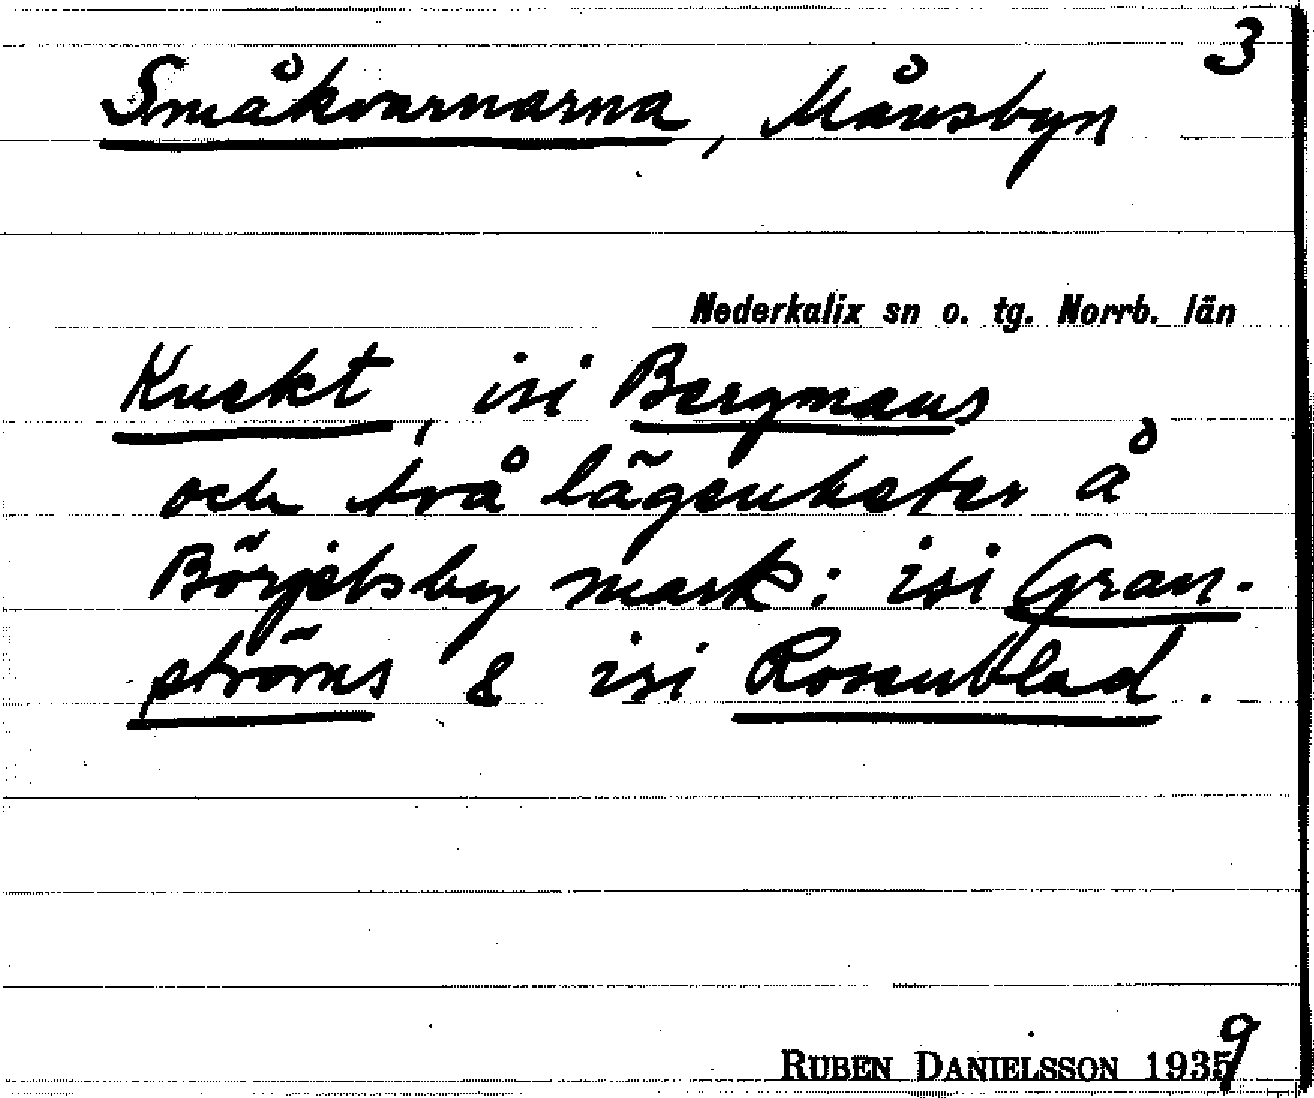 3
Småkvarnarna, Månsbyn
Nederkalix sn o. tg. Norrb. län
Knekt, isi Bergmans
och två lägenheter å
Börjelsby mark: isi Gran-
ströms & isi Rosenblad.
RUBEN DANIELSSON 1939